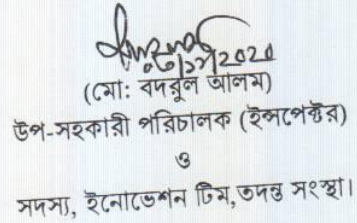 (মো: বদরুল আলম)
উপ-সহকারী পরিচালক (ইন্সপেক্টর)
ও
সদস্য, ইনোভেশন টিম,তদন্ত সংস্থা।